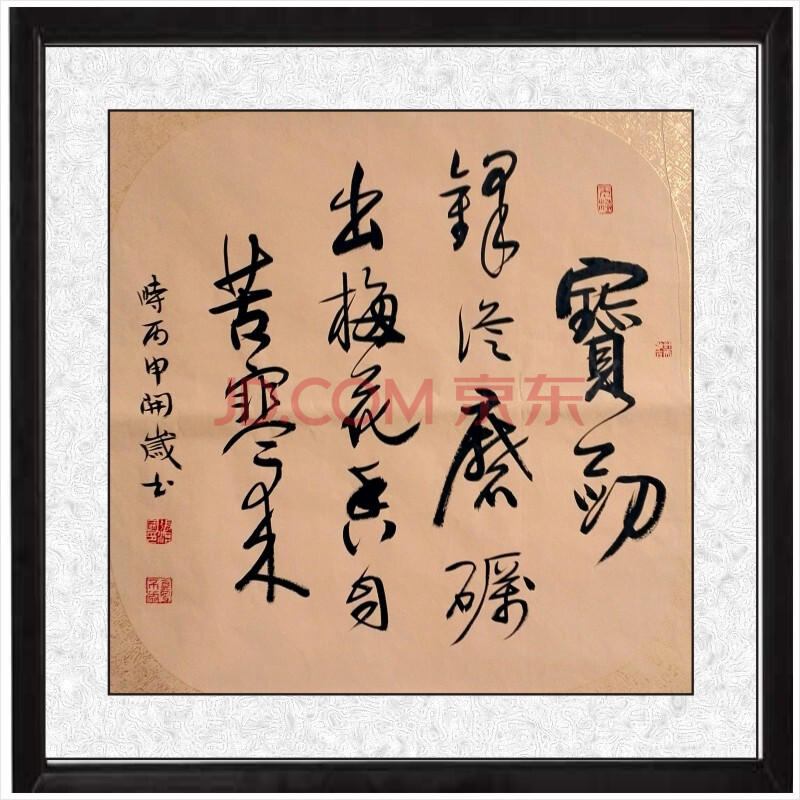 寶劒
鋒從磨礪
出梅花香自
苦寒來
時丙申開歲書
JD.COM 京东